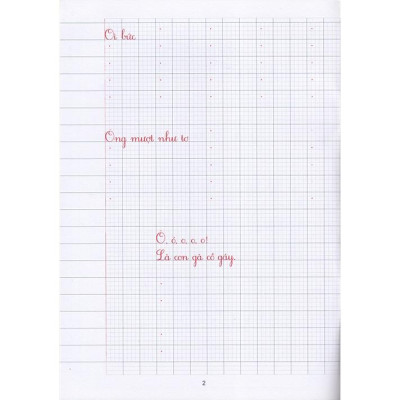 Oi bức
Ong mượt như tơ
O, ó, o, o, o!
Là con gà cồ gáy.
2